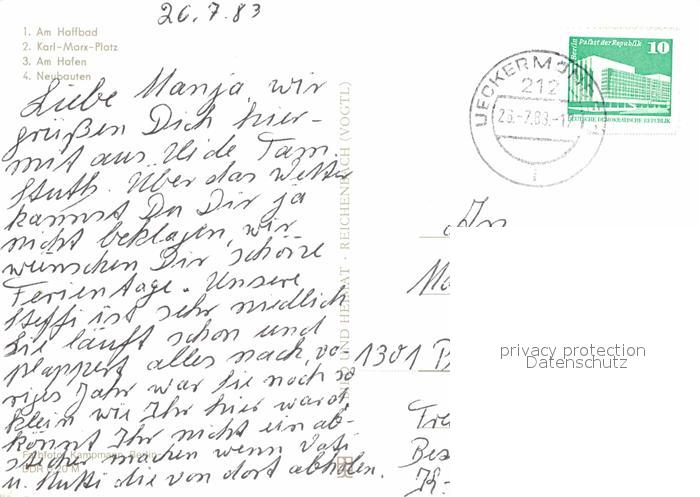 26.7.83
1. Am Haffbad
2. Karl-Marx-Platz
3. Am Hafen
4. Neubauten
Liebe Manja, wir
grüßen Dich hier-
mit aus Tam.
Über das Wetter
kannst Du Dir ja
nicht beklagen, wir
wünschen Dir schöne
Ferientage. Unsere
Steffi ist sehr niedlich
Sie läuft schon und
plappert alles nach, vo-
riges Jahr war sie noch so
klein wie Ihr hier ward,
könnt Ihr nicht ein ab-
stecher machen wenn Vati
u. Mutti die von dort abholen.
Farbfoto: Kampmann, Berlin
DDR 0,20 M
BILD UND HEIMAT · REICHENBACH (VOGTL)
UECKERMÜN
212
26.-7.83.-1
Berlin Palast der Republik
10
DEUTSCHE DEMOKRATISCHE REPUBLIK
An
1301
privacy protection
Datenschutz